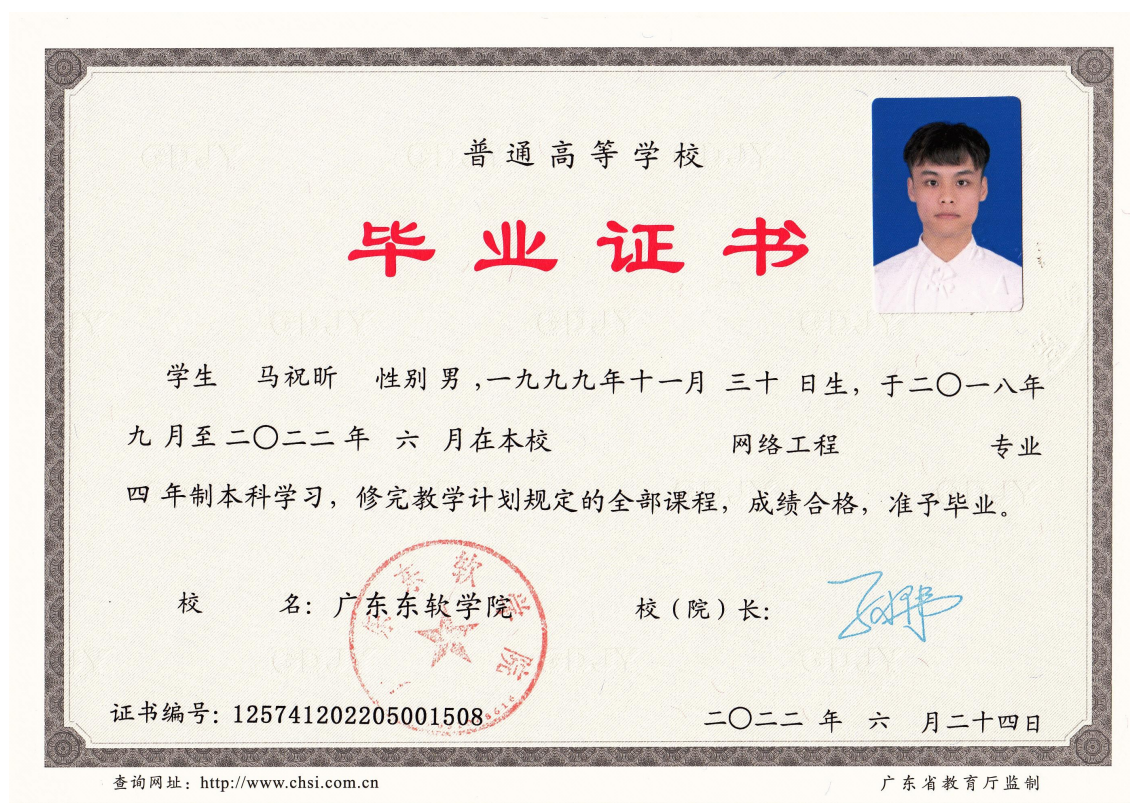 普通高等学校
毕业证书
学生 马祝昕 性别 男 ,一九九九年十一月 三十 日生，于二〇一八年
九 月至 二〇二二 年 六 月在本校 网络工程 专业
四 年制本科学习，修完教学计划规定的全部课程，成绩合格，准予毕业。
校 名：广东东软学院 校（院）长：
证书编号：125741202205001508 二〇二二 年 六 月二十四日
查询网址：http://www.chsi.com.cn 广东省教育厅监制